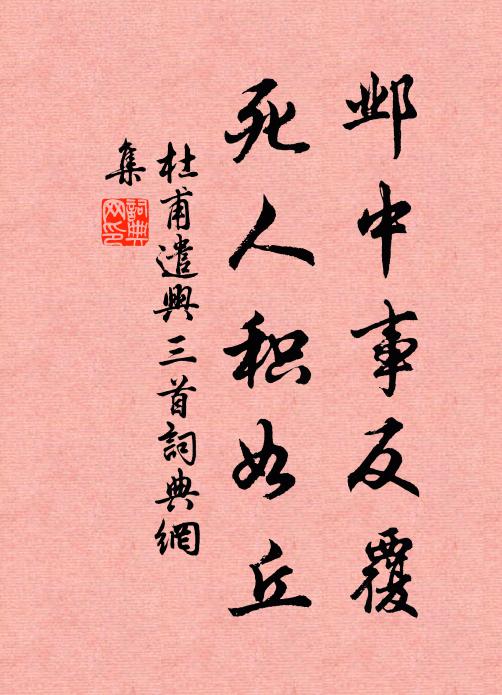 邺中事反覆
死人积如丘
杜甫遣興三首詞典網
集
詞典
网印